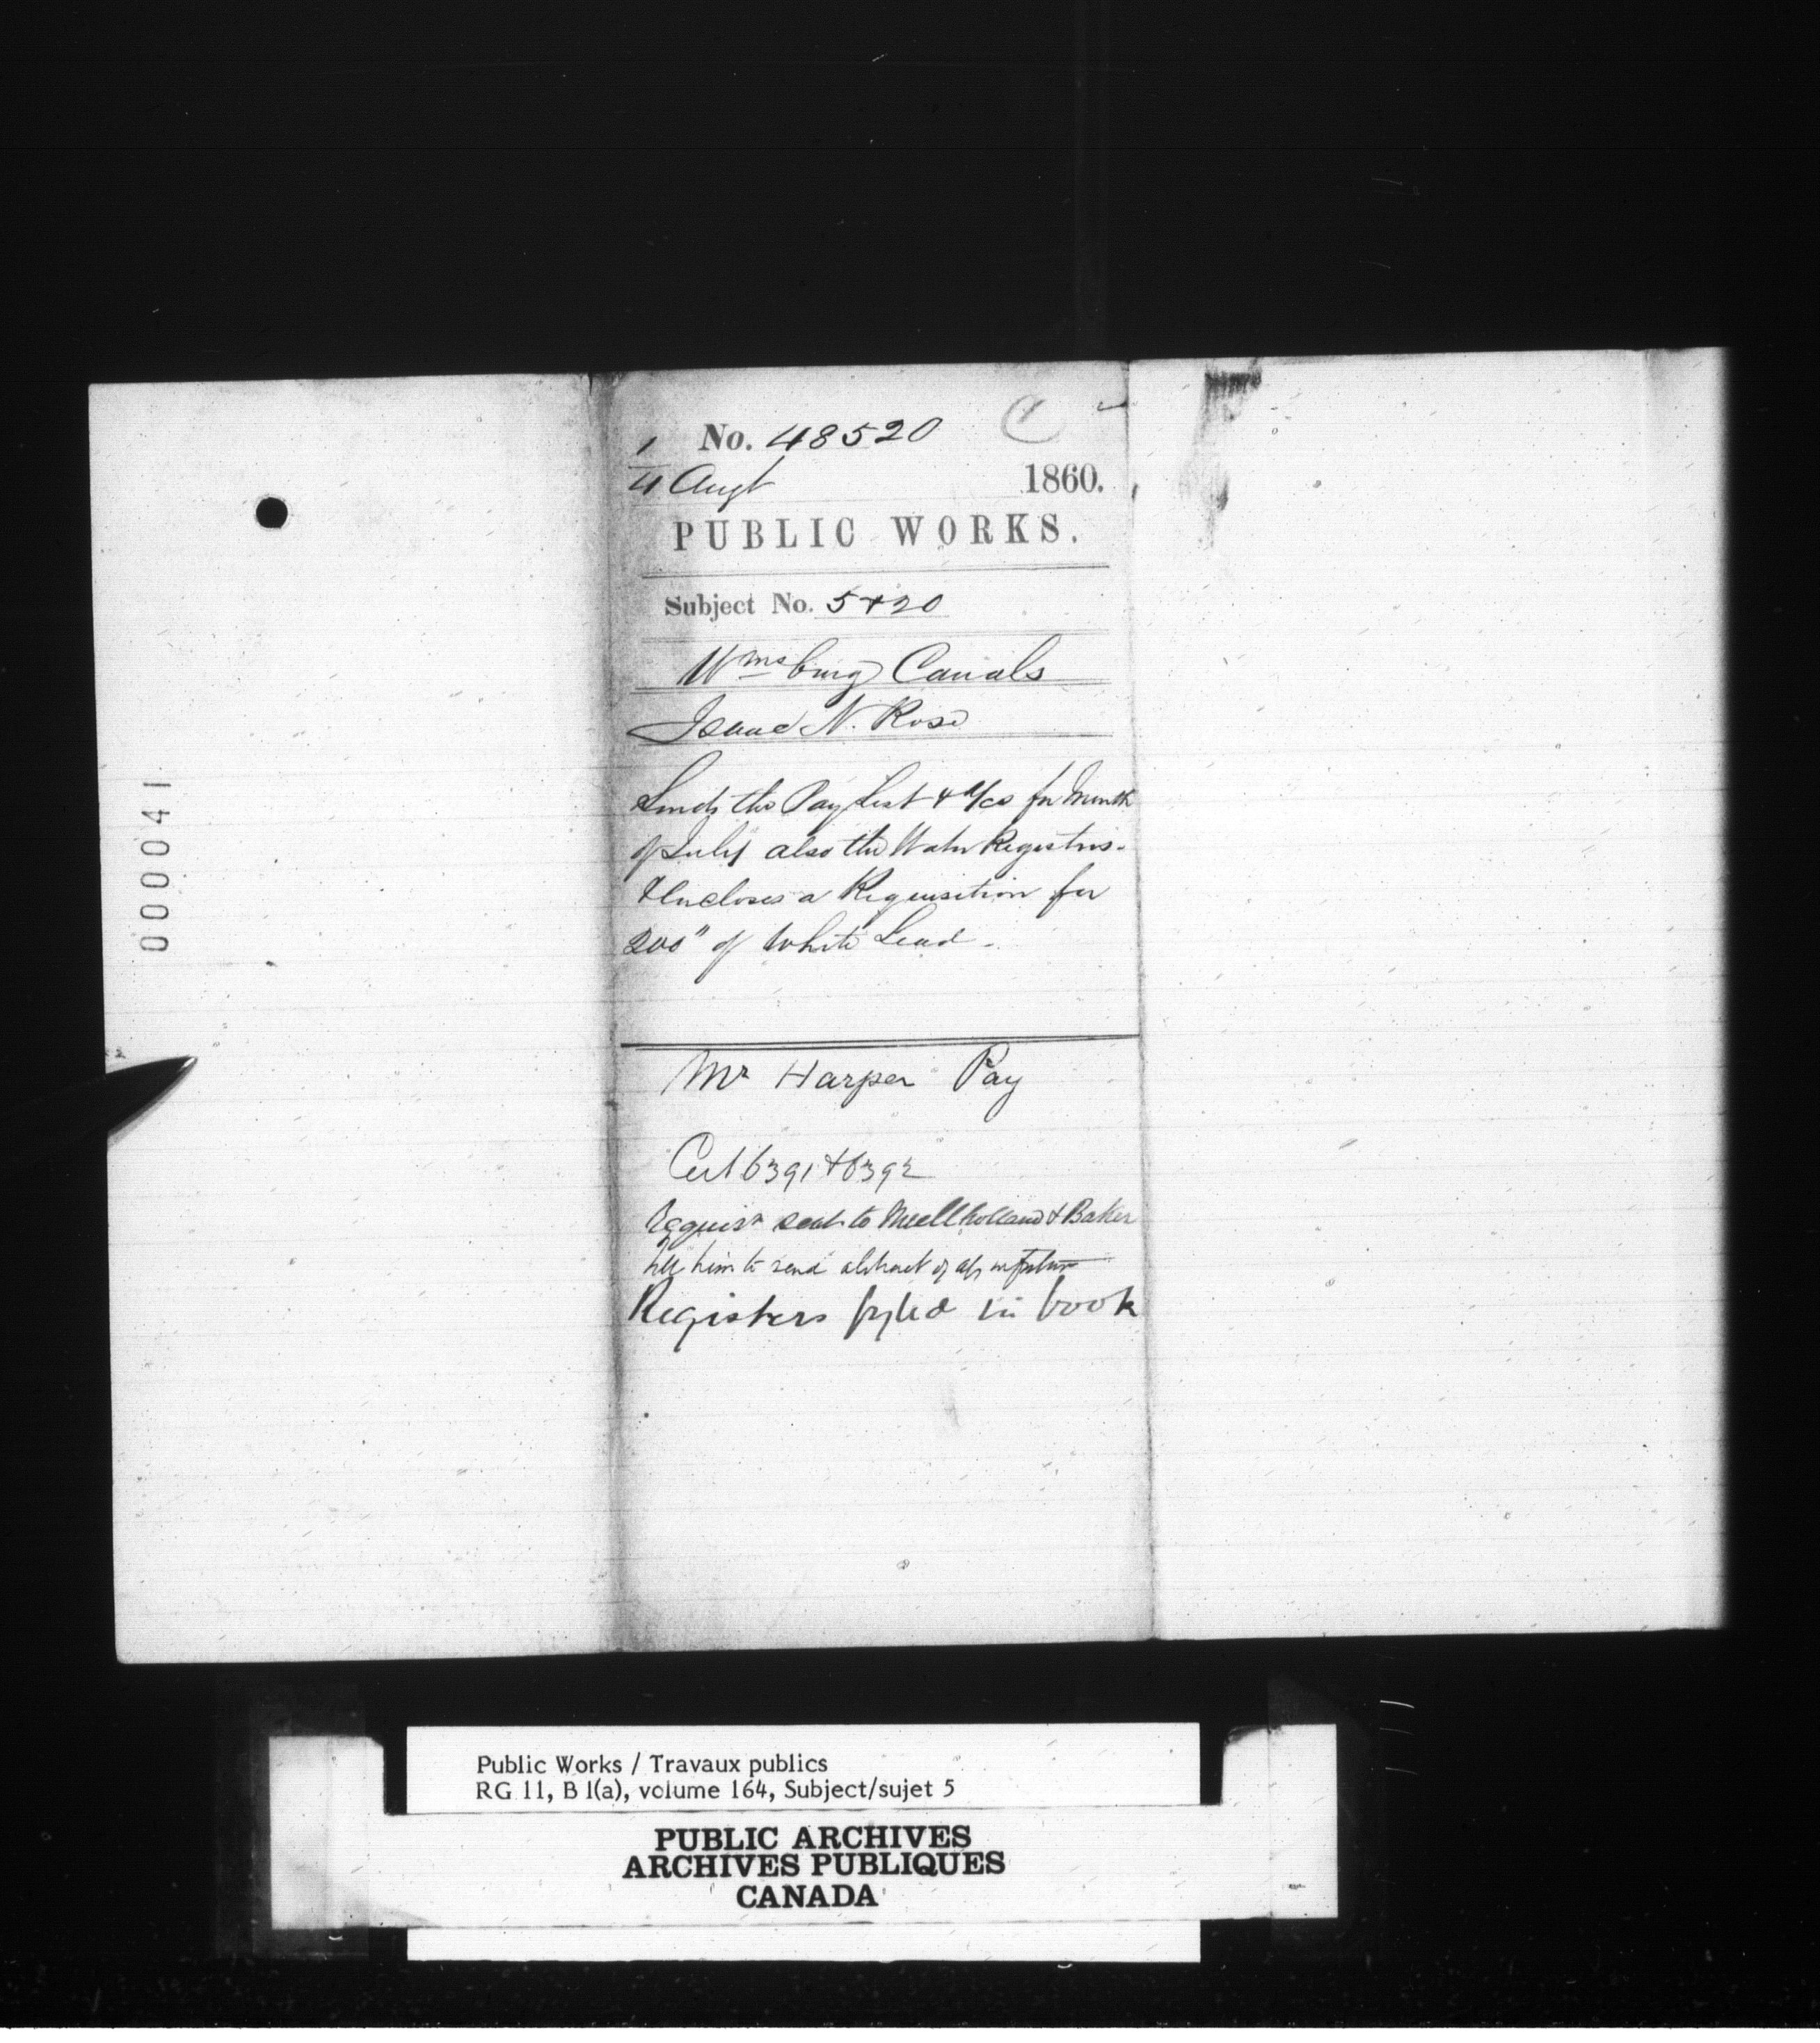 No. 48520
1/4 Augt 1860.
PUBLIC WORKS.
Subject No. 5 & 20
Wmsburg Canals
Isaac N. Rose
Sends the Pay List & a/cs for Month
of July also the Water Registers.
& Encloses a Requisition for
200" of White Lead.
Mr Harper Pay
Cert 6391 & 6392
Requisn sent to Mulholland & Baker
tell him to send abstract of a/cs in future
Registers fyled in book
000041
Public Works / Travaux publics
RG 11, B 1(a), volume 164, Subject/sujet 5
PUBLIC ARCHIVES
ARCHIVES PUBLIQUES
CANADA